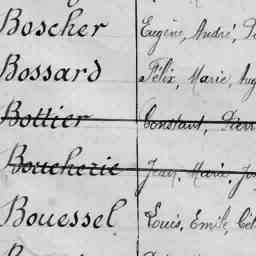 Boscher Eugène, André,
Bossard Félix, Marie,
Bottier Constant, Pierr
Boucherie Jean, Marie,
Bouessel Louis, Emile,